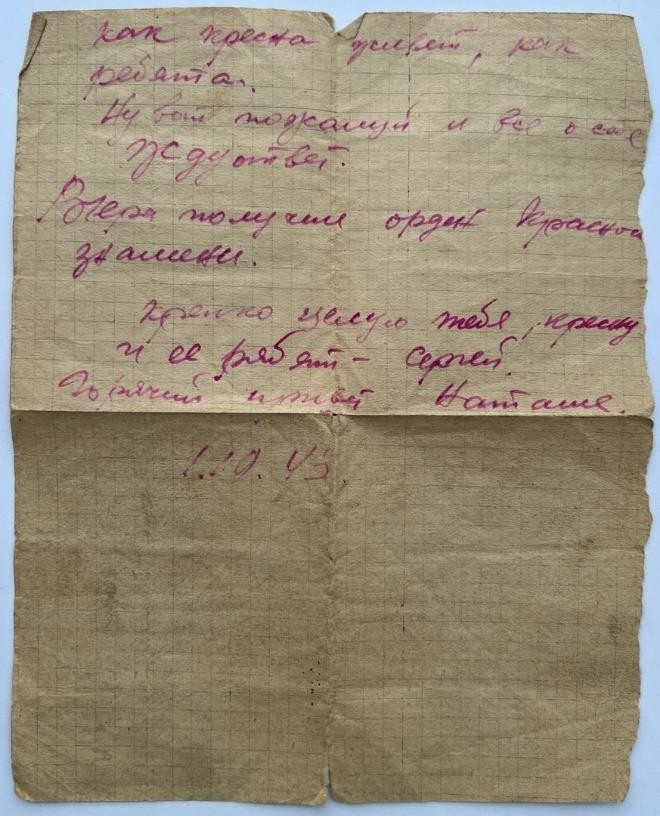 как кресна живет, как
ребята.
Ну вот пожалуй и все о себе
Жду ответ.
Вчера получил орден Красной
знамени.
Крепко целую тебя, кресну
и ее рябят - Сергей.
Горячий привет Наташе.
1.10.43